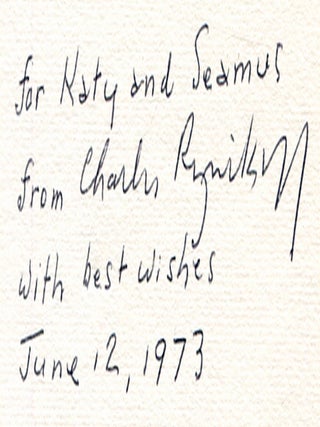 for Katy and Seamus
from Charles Reznikoff
with best wishes
June 12, 1973